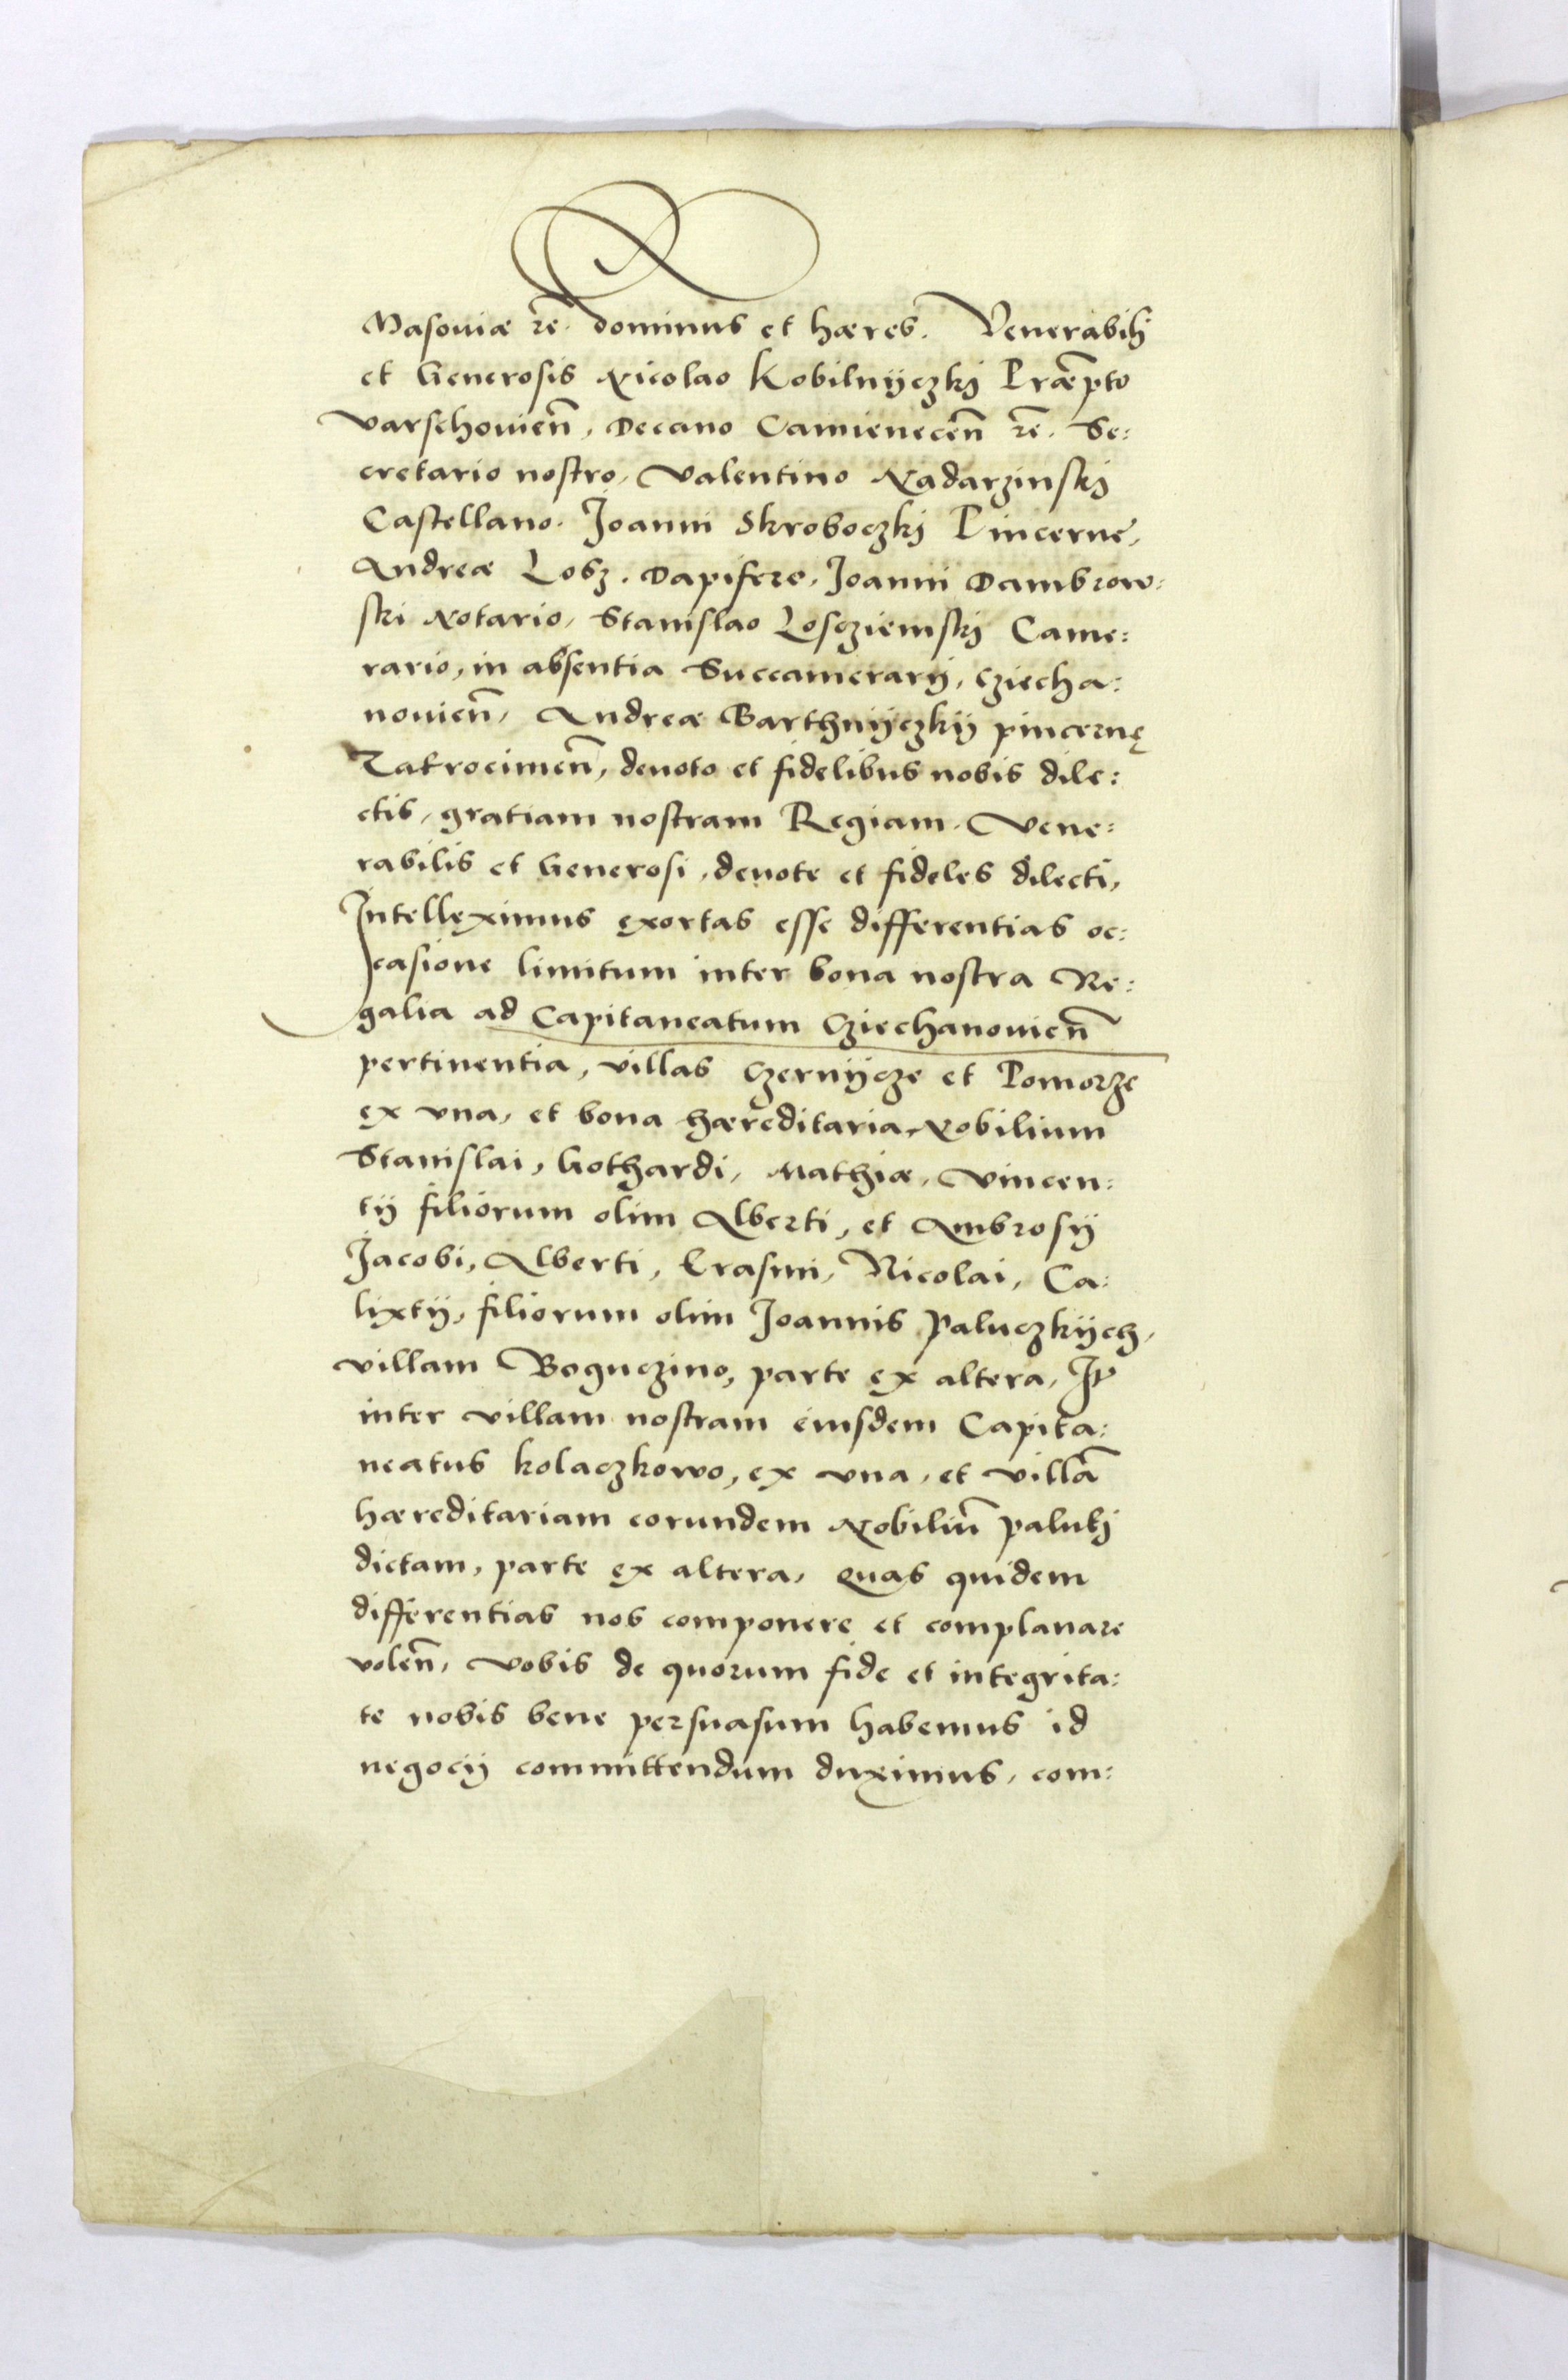 Masoviæ rē. dominus et hæres. Venerabili
et Generosis Nicolao Kobilnyczki Præpto
Varschovieñ, Decano Camieneceñ rē. Se:
cretario nostro, Valentino Nadarzinski
Castellano. Joanni Skroboczki Pincernę,
Andreæ Lobz. Dapifero, Joanni Dambrow:
ski Notario, Stanislao Loscziemski Came:
rario, in absentia Succamerarij, Cziecha:
novieñ, Andreæ Barthnyczky pincernę
Zakrocimeñ, devoto et fidelibus nobis dile:
ctis, gratiam nostram Regiam. Vene:
rabilis et Generosi, devote et fideles dilecti,
Intelleximus exortas esse differentias oc:
casione limitum inter bona nostra Re:
galia ad Capitaneatum Cziechanovieñ
pertinentia, villas Czernycze et Pomorze
ex una, et bona hæreditaria Nobilium
Stanislai, Gothardi, Mathiæ, Vincen:
tij filiorum olim Alberti, et Ambrosij
Jacobi, Alberti, Erasmi, Nicolai, Ca:
lixtij, filiorum olim Joannis Paluczkych,
villam Boguczino, parte ex altera, It
inter villam nostram eiusdem Capita:
neatus Kolaczkowo, ex una, et villā
hæreditariam eorundem Nobiliū paluki
dictam, parte ex altera, quas quidem
differentias nos componere et complanare
voleñ, vobis de quorum fide et integrita:
te nobis bene persuasum habemus id
negocij committendum duximus, com: